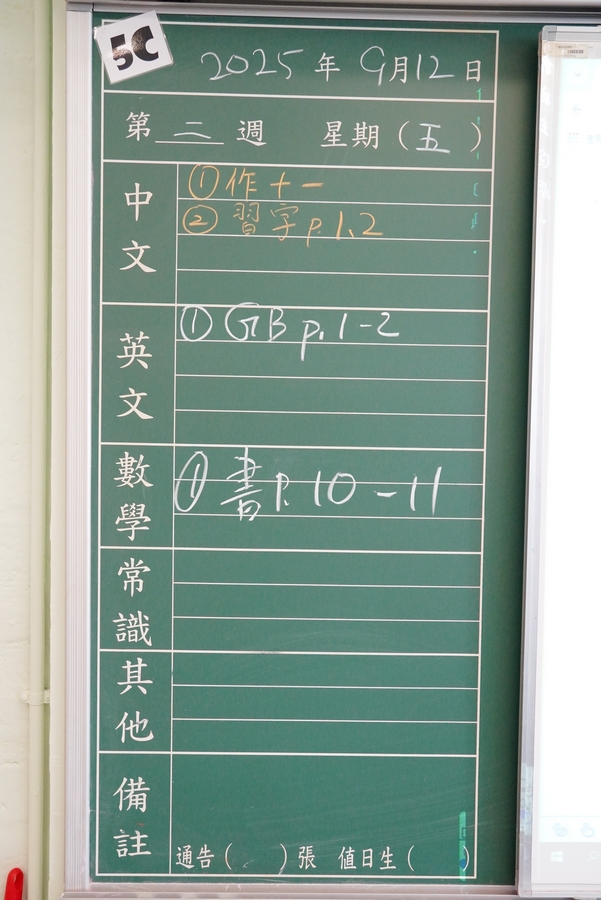 5C
2025年 9月12日
第 二 週 星期(五)
中文
①作十一
②習字p.1、2
英文
①GB p.1-2
數學
①書P.10-11
常識
其他
備註
通告( )張 值日生( )